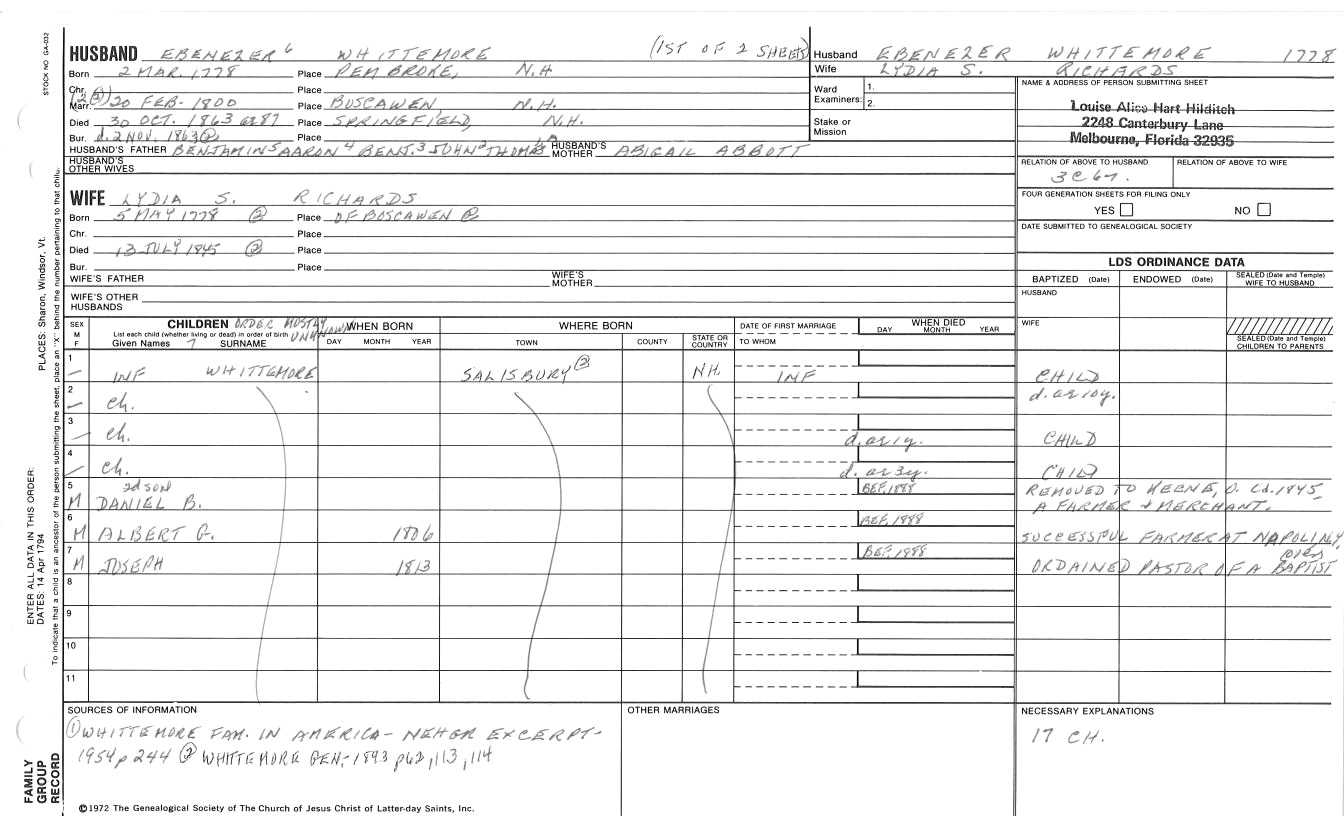 STOCK NO GA-032
HUSBAND EBENEZER 6 WHITTEMORE (1ST OF 2 SHEETS)
Born 2 MAR. 1778 Place PEMBROKE, N.H
Chr. Place
Marr. 20 FEB. 1800 Place BOSCAWEN, N.H.
Died 30 OCT. 1863 ae 87 Place SPRINGFIELD, N.H.
Bur. d. 2 NOV. 1863 ② Place
HUSBAND'S FATHER BENJAMIN 5 AARON 4 BENJ. 3 JOHN 2 THOMAS HUSBAND'S MOTHER ABIGAIL ABBOTT
HUSBAND'S OTHER WIVES
WIFE LYDIA S. RICHARDS
Born 5 MAY 1778 ② Place OF BOSCAWEN ②
Chr. Place
Died 13 JULY 1845 ② Place
Bur. Place
WIFE'S FATHER WIFE'S MOTHER
WIFE'S OTHER HUSBANDS
Husband EBENEZER WHITTEMORE 1778
Wife LYDIA S. RICHARDS
Ward Examiners: 1.
2.
Stake or Mission
NAME & ADDRESS OF PERSON SUBMITTING SHEET
Louise Alice Hart Hilditch
2248 Canterbury Lane
Melbourne, Florida 32935
RELATION OF ABOVE TO HUSBAND RELATION OF ABOVE TO WIFE
3C6r.
FOUR GENERATION SHEETS FOR FILING ONLY
YES NO
DATE SUBMITTED TO GENEALOGICAL SOCIETY
LDS ORDINANCE DATA
BAPTIZED (Date) ENDOWED (Date) SEALED (Date and Temple) WIFE TO HUSBAND
HUSBAND
WIFE
SEALED (Date and Temple) CHILDREN TO PARENTS
SEX M F
CHILDREN ORDER MOSTLY UNKNOWN
List each child (whether living or dead) in order of birth
Given Names SURNAME
WHEN BORN
DAY MONTH YEAR
WHERE BORN
TOWN COUNTY STATE OR COUNTRY
DATE OF FIRST MARRIAGE
TO WHOM
WHEN DIED
DAY MONTH YEAR
1 INF WHITTEMORE SALISBURY ② NH. INF CHILD
2 ch. d. ae 10y.
3 ch. d. ae 1y. CHILD
4 ch. d. ae 3y. CHILD
5 M 2d SON DANIEL B. BEF. 1888 REMOVED TO KEENE, O. Ca. 1845, A FARMER & MERCHANT.
6 M ALBERT G. 1806 BEF. 1888 SUCCESSFUL FARMER AT NAPOLI, NY
7 M JOSEPH 1813 BEF. 1888 ORDAINED PASTOR OF A BAPTIST
8
9
10
11
SOURCES OF INFORMATION
① WHITTEMORE FAM. IN AMERICA - NEHGR EXCERPT-
1954 p 244 ② WHITTEMORE GEN. - 1893 p62, 113, 114
OTHER MARRIAGES
NECESSARY EXPLANATIONS
17 CH.
©1972 The Genealogical Society of The Church of Jesus Christ of Latter-day Saints, Inc.
FAMILY GROUP RECORD
ENTER ALL DATA IN THIS ORDER:
DATES: 14 Apr 1794
PLACES: Sharon, Windsor, Vt.
To indicate that a child is an ancestor of the person submitting the sheet, place an "X" behind the number pertaining to that child.